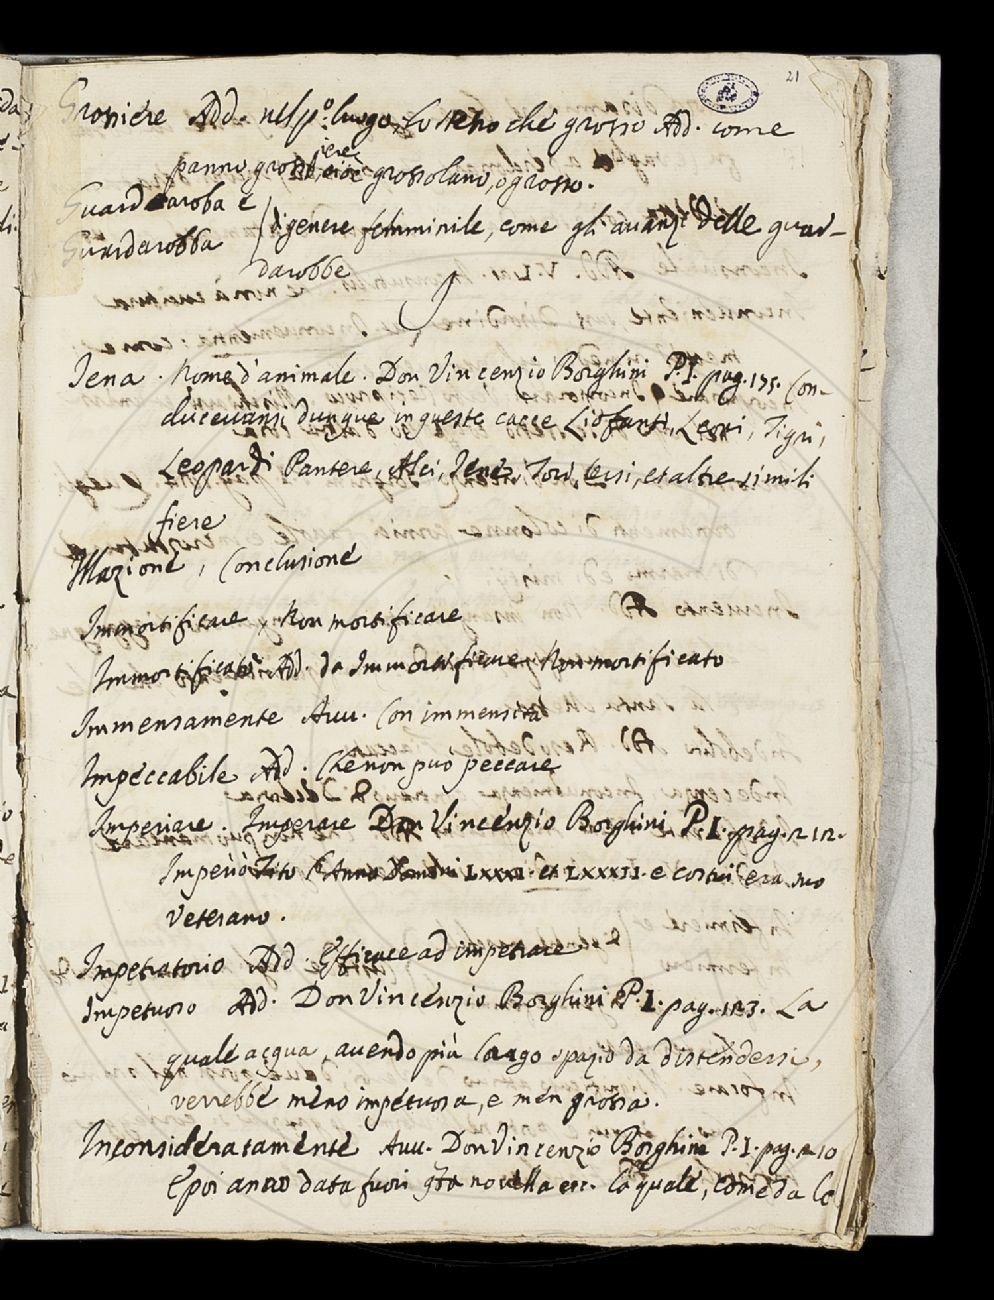 21
Grossiere Add. nel pº. luogo, lo stesso che grosso Add. come
panno grossiere, cioè grossolano, o grosso.
Guardaroba e
Guardarobba
di genere femminile, come gli auanzi delle guar-
darobbe
Iena. Nome d'animale. Don Vincenzio Borghini P.I. pag. 175. Con-
duceuansi dunque in queste cacce Liofanti, Leoni, Tigri,
Leopardi Pantere, Alci, Iene, Tori, Orsi, et altre simili
fiere
Illazione, Conclusione
Immortificare, Non mortificare
Immortificato Add. da Immortificare, Non mortificato
Immensamente Auu. Con immensità
Impeccabile Add. Che non può peccare
Imperiare. Imperare Don Vincenzio Borghini P.I. pag. 212.
Imperiò Tito l'Anno Domini LXXXI. et LXXXII. e costui era suo
veterano.
Impetratorio Add. Efficace ad impetrare
Impetuoso Ad. Don Vincenzio Borghini P.I. pag. 123. La
quale acqua, auendo più largo spazio da distendersi,
verrebbe meno impetuosa, e men grossa.
Inconsideratamente Auu. Don Vincenzio Borghini P.I. pag. 210
E poi anco data fuori qta nouella etc. la quale, come da le